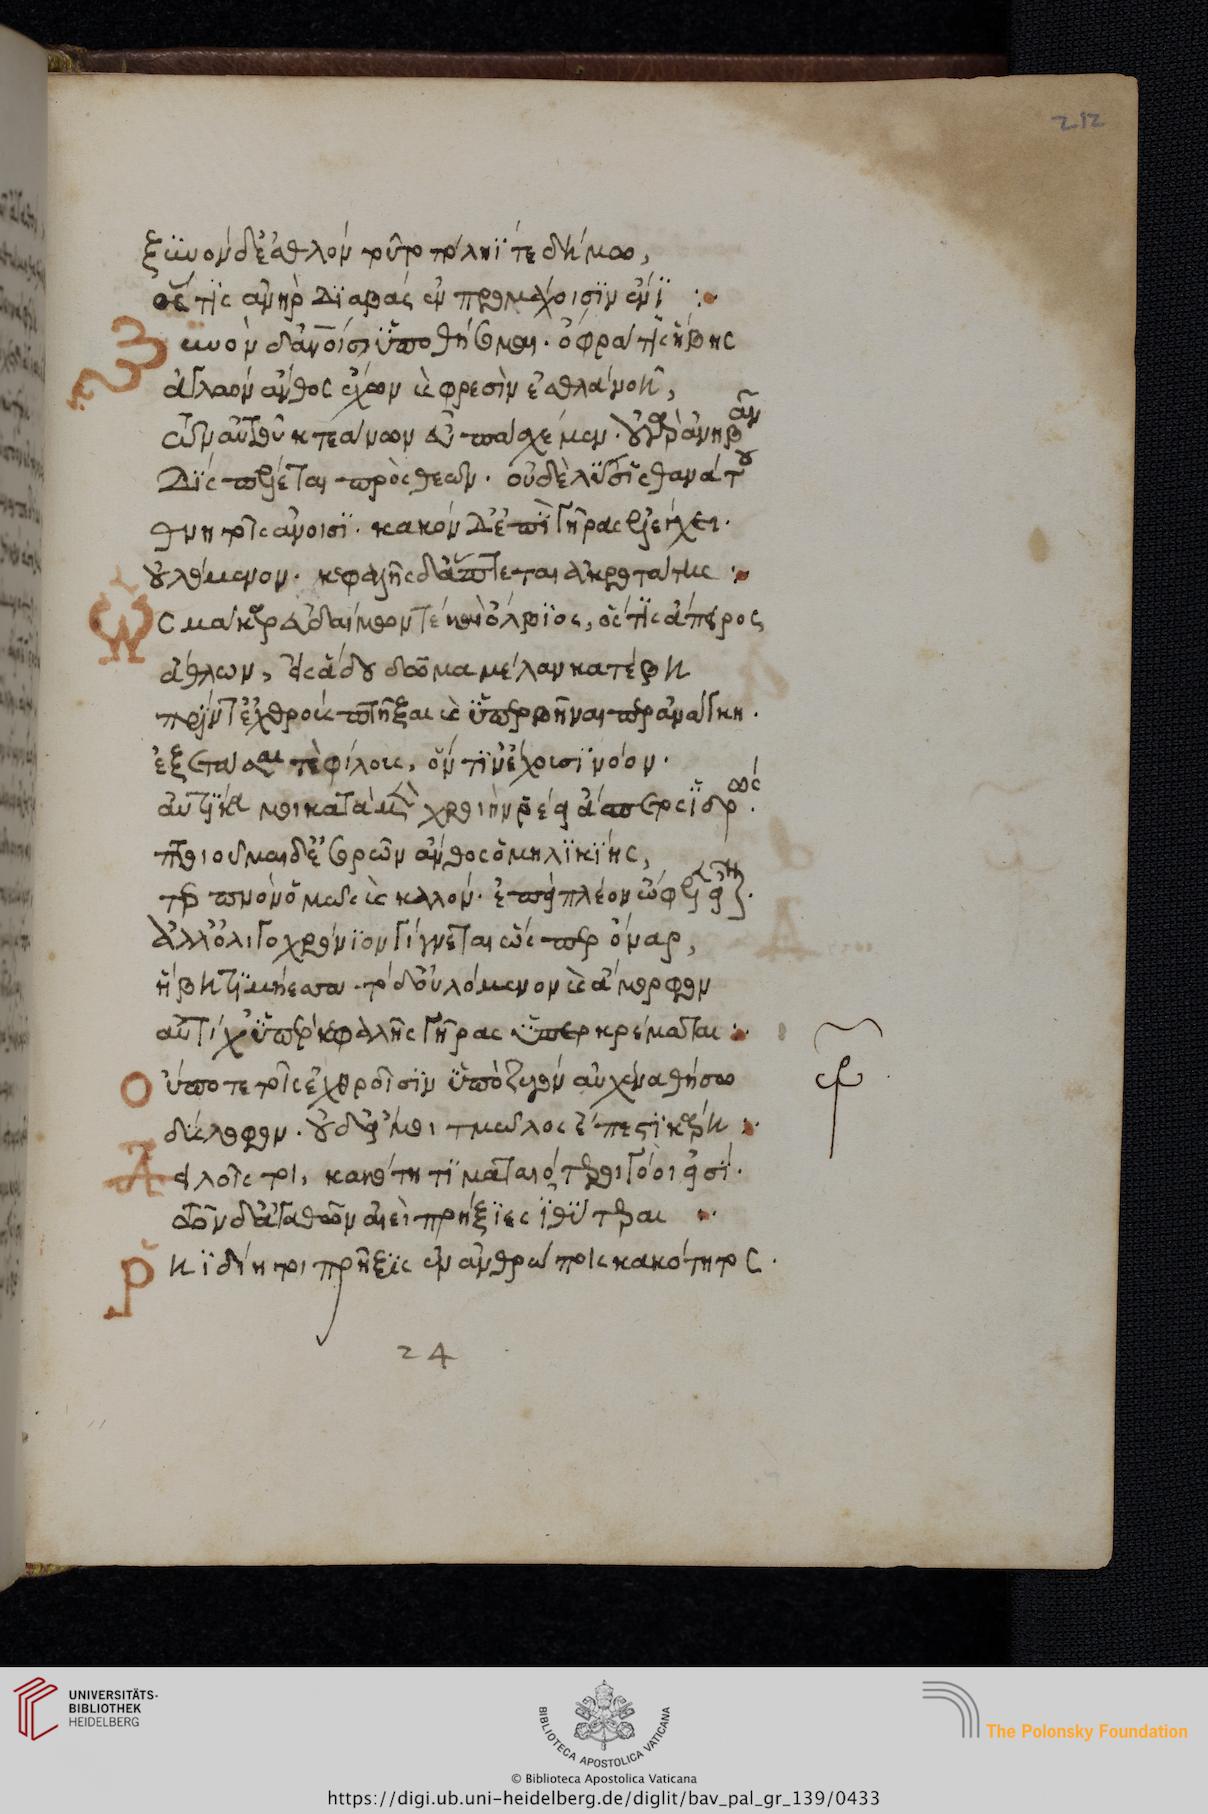 212
ξυνὸν δ' ἐσθλὸν τοῦτο πόληΐ τε δήμω,
ὅς τις ἀνὴρ διαβὰς ἐν προμάχοισιν ἐνὶ :·
Ξυνὸν δ' ἀνοις ὑποθήσομαι· ὄφρα τις ἥβης
ἀγλαὸν ἄνθος ἔχων καὶ φρεσὶν ἐσθλὰ νοῆ,
τῶν αὐτοῦ κτεάνων εὖ πασχέμεν· οὐ γὰρ ἀνηβᾶν
δὶς πέλεται πρὸς θεῶν· οὐδὲ λύσις θανάτου
θνητοῖς ἀνοισι· κακὸν δ' ἐπὶ γῆρας ἐλέγχει·
οὐλόμενον· κεφαλῆς δ' ἅπτεται ἀκροτάτης :·
Ὡς μάκαρ εὐδαίμων τε καὶ ὄλβιος, ὅς τις ἄπειρος
ἄθλων, εἰς ἄδου δῶμα μέλαν κατέβη
πρίν τ' ἐχθροὺς πτῆξαι καὶ ὑπερβῆναι περ ἀνάγκη·
ἐξετάσαι τε φίλους, ὅν τιν' ἔχουσι νόον·
αὐτίκα μοι κατὰ μὲν χροιὴν ῥέει ἄσπετος ἱδρώς·
πτοιοῦμαι δ' ἐσορῶν ἄνθος ὁμηλικίης,
τερπνὸν ὅμως καὶ καλόν· ἐπεὶ πλέον ὤφελεν εἶναι·
Ἀλλ' ὀλιγοχρόνιον γίγνεται ὥς περ ὄναρ,
ἥβη τιμήεσσα· τὸ δ' οὐλόμενον καὶ ἄμορφον
αὐτίχ' ὑπὲρ κεφαλῆς γῆρας ὑπερκρέμαται :·
Οὔποτε τοῖς ἐχθροῖσιν ὑπὸ ζυγὸν αὐχένα θήσω
δύσλοφον· οὐδ' εἴ μοι τμῶλος ἔπεστι κάρη :·
Δειλοῖς τοι, κακότητι ματαιότεροι νόοι εἰσί·
τῶν δ' ἀγαθῶν αἰεὶ πρήξιες ἰθύτεραι :·
Ῥηϊδίη τοι πρῆξις ἐν ἀνθρώποις κακότητος·
24
UNIVERSITÄTS-
BIBLIOTHEK
HEIDELBERG
BIBLIOTECA APOSTOLICA VATICANA
The Polonsky Foundation
© Biblioteca Apostolica Vaticana
https://digi.ub.uni-heidelberg.de/diglit/bav_pal_gr_139/0433